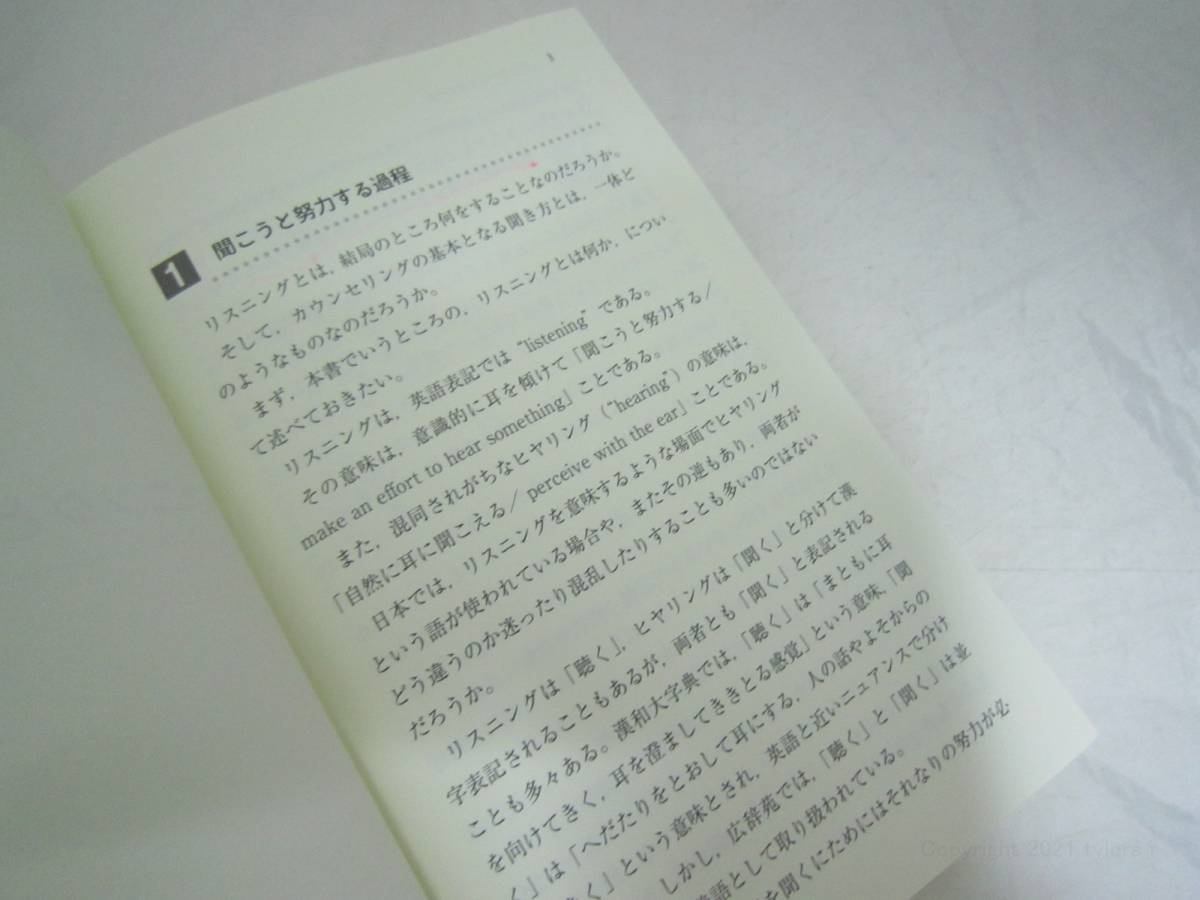 3
1 聞こうと努力する過程
リスニングとは，結局のところ何をすることなのだろうか。
そして，カウンセリングの基本となる聞き方とは，一体ど
のようなものなのだろうか。
まず，本書でいうところの，リスニングとは何か，につい
て述べておきたい。
リスニングは，英語表記では“listening”である。
その意味は，意識的に耳を傾けて「聞こうと努力する/
make an effort to hear something」ことである。
また，混同されがちなヒヤリング（“hearing”）の意味は，
「自然に耳に聞こえる/ perceive with the ear」ことである。
日本では，リスニングを意味するような場面でヒヤリング
という語が使われている場合や，またその逆もあり，両者が
どう違うのか迷ったり混乱したりすることも多いのではない
だろうか。
リスニングは「聴く」，ヒヤリングは「聞く」と分けて漢
字表記されることもあるが，両者とも「聞く」と表記される
ことも多々ある。漢和大字典では，「聴く」は「まともに耳
を向けてきく，耳を澄ましてききとる感覚」という意味，「聞
く」は「へだたりをとおして耳にする，人の話やよそからの
く」という意味とされ，英語と近いニュアンスで分け
しかし，広辞苑では，「聴く」と「聞く」は並
語として取り扱われている。
を聞くにためにはそれなりの努力が必
Copyright 2021